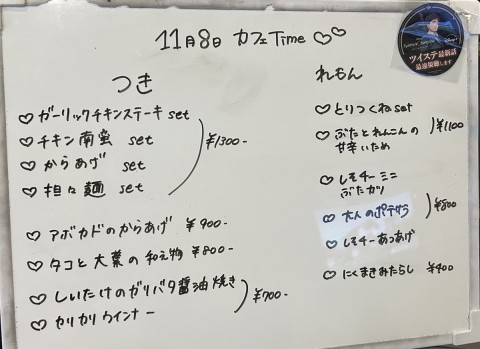 11月8日 カフェTime ♡♡
つき
♡ガーリックチキンステーキ set
♡チキン南蛮 set
♡からあげ set
♡担々麺 set
¥1300-
♡アボカドのからあげ ¥900-
♡タコと大葉の和え物 ¥800-
♡しいたけのガリバタ醤油焼き
♡カリカリウインナー
¥700-
れもん
♡とりつくねset
♡ぶたとれんこんの
甘辛いため
¥1100
♡しそチーミニ
ぶたカツ
♡大人のポテサラ
♡しそチーあつあげ
¥500
♡にくまきみたらし ¥400
ツイステ最新話
最速視聴します